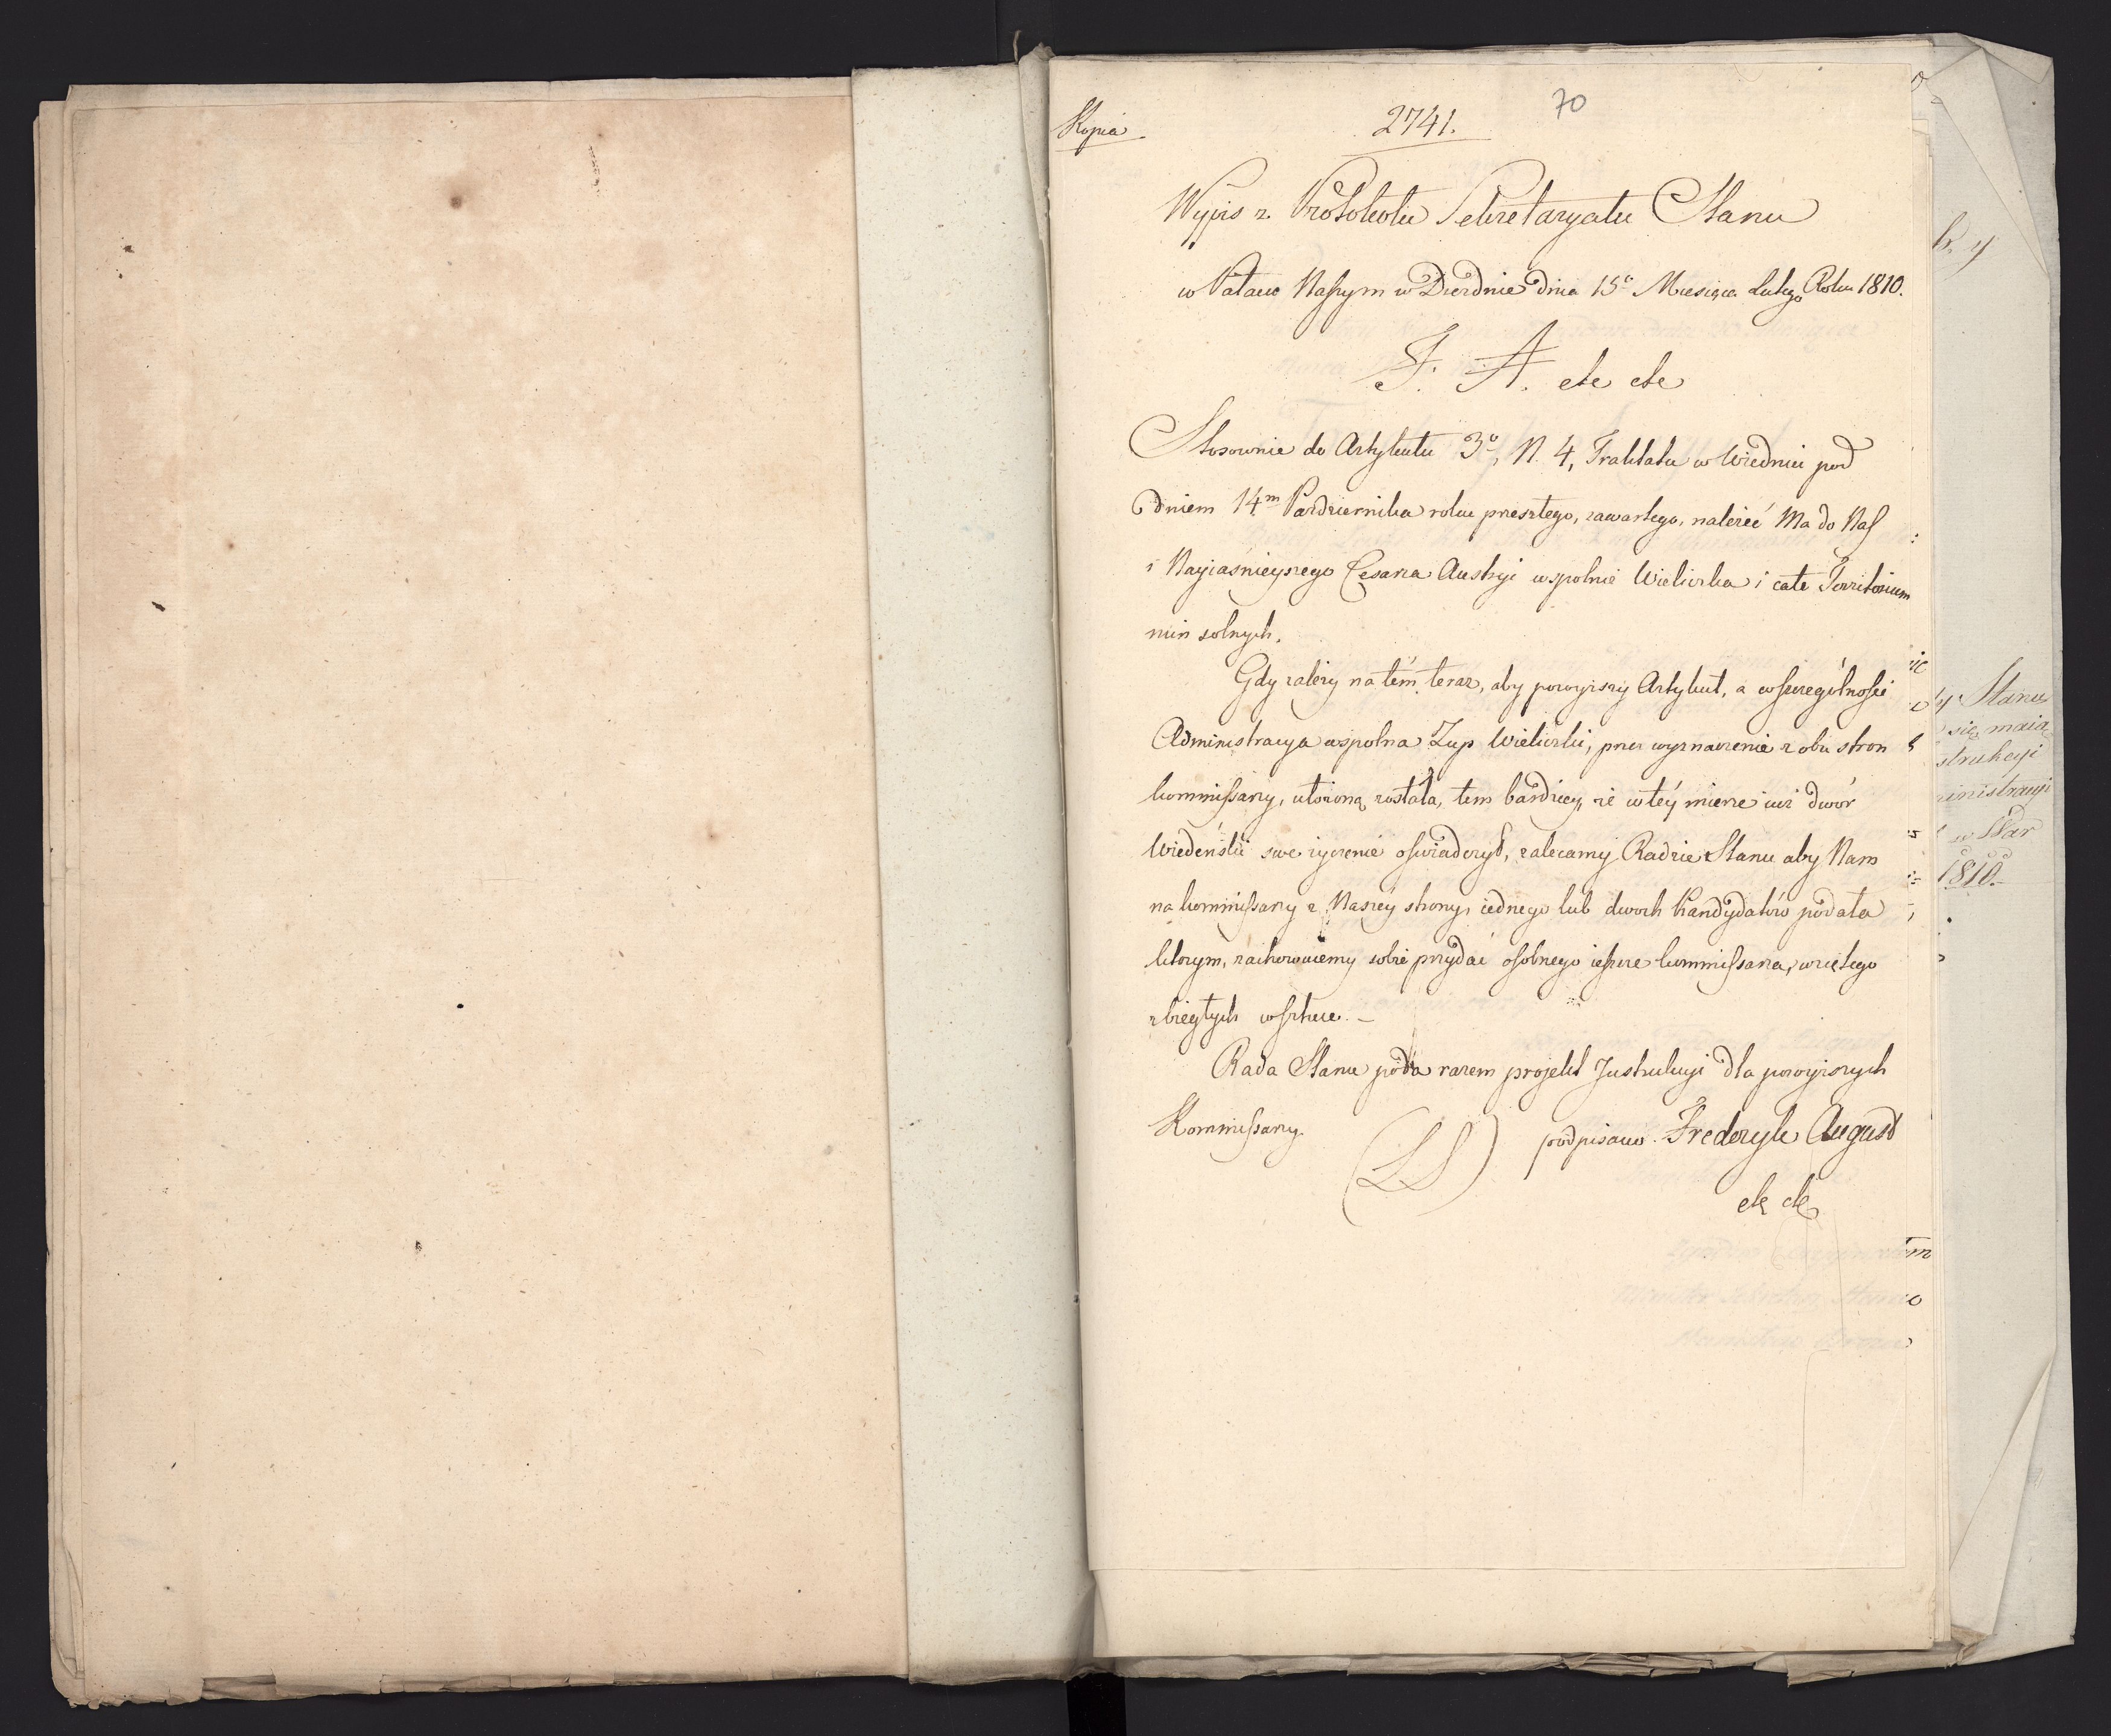 70
Kopia.
2741.
Wypis z Protokołu Sekretaryatu Stanu
w Pałacu Naszym w Dreźdnie dnia 15º Miesiąca Lutego Roku 1810.
F. A. etc etc
Stosownie do Artykułu 3º, N. 4, Traktatu w Wiedniu pod
dniem 14m Października roku przeszłego, zawartego, należeć Ma do Nas
i Nayiaśnieyszego Cesarza Austryi wspolnie Wieliczka i całe Territorium
min solnych.
Gdy zależy na tém teraz, aby powyższy Artykuł, a wszczególności
Administracya wspolna Żup Wieliczki, przez wyznaczenie z obu stron
kommissarzy, ułożoną została, tem bardziey, że w téy mierze iuż dwór
Wiedeński swe życzenie oświadczył, zalecamy Radzie Stanu aby Nam
na kommissarzy z Naszéy strony, iednego lub dwoch Kandydatów podała
którym, zachowuiemy sobie przydać osobnego ieszcze kommissarza, wziętego
z biegłych w sztuce. –
Rada Stanu poda razem projekt Instrukcyi dla powyższych
Kommissarzy.
(LS)
podpisano. Fryderyk August
etc etc
y Stanu
się maią
strukcyi
inistracyi
w War
1810.